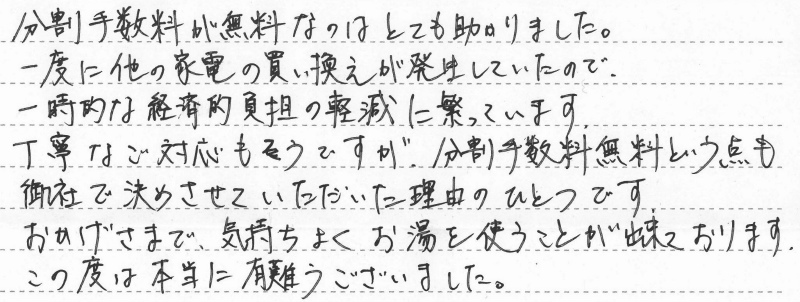 分割手数料が無料なのはとても助かりました。
一度に他の家電の買い換えが発生していたので、
一時的な経済的負担の軽減に繋っています。
丁寧なご対応もそうですが、分割手数料無料という点も
御社で決めさせていただいた理由のひとつです。
おかげさまで、気持ちよくお湯を使うことが出来ております。
この度は本当に有難うございました。